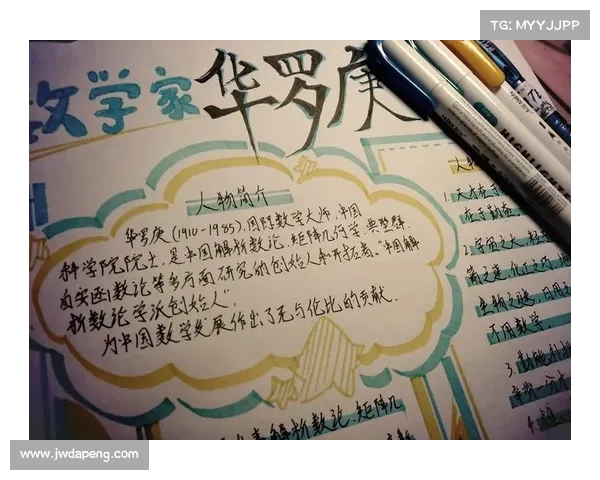 TG: MYYJJPP
数学家 华罗庚
人物简介
华罗庚(1910-1985),国际数学大师,中国
科学院院士,是中国解析数论、矩阵几何学、典型群、
自守函数论等多方面研究的创始人和开拓者,"中国解
析数论学派创始人"
为中国数学发展作出了无与伦比的贡献.
解析数论、矩阵几
人物
1.天才在于
在于勤奋
2.宇宙之大,粒
箭之速,化工之巧
生物之谜,日用之
不用数学.
3.
www.jwdapeng.com